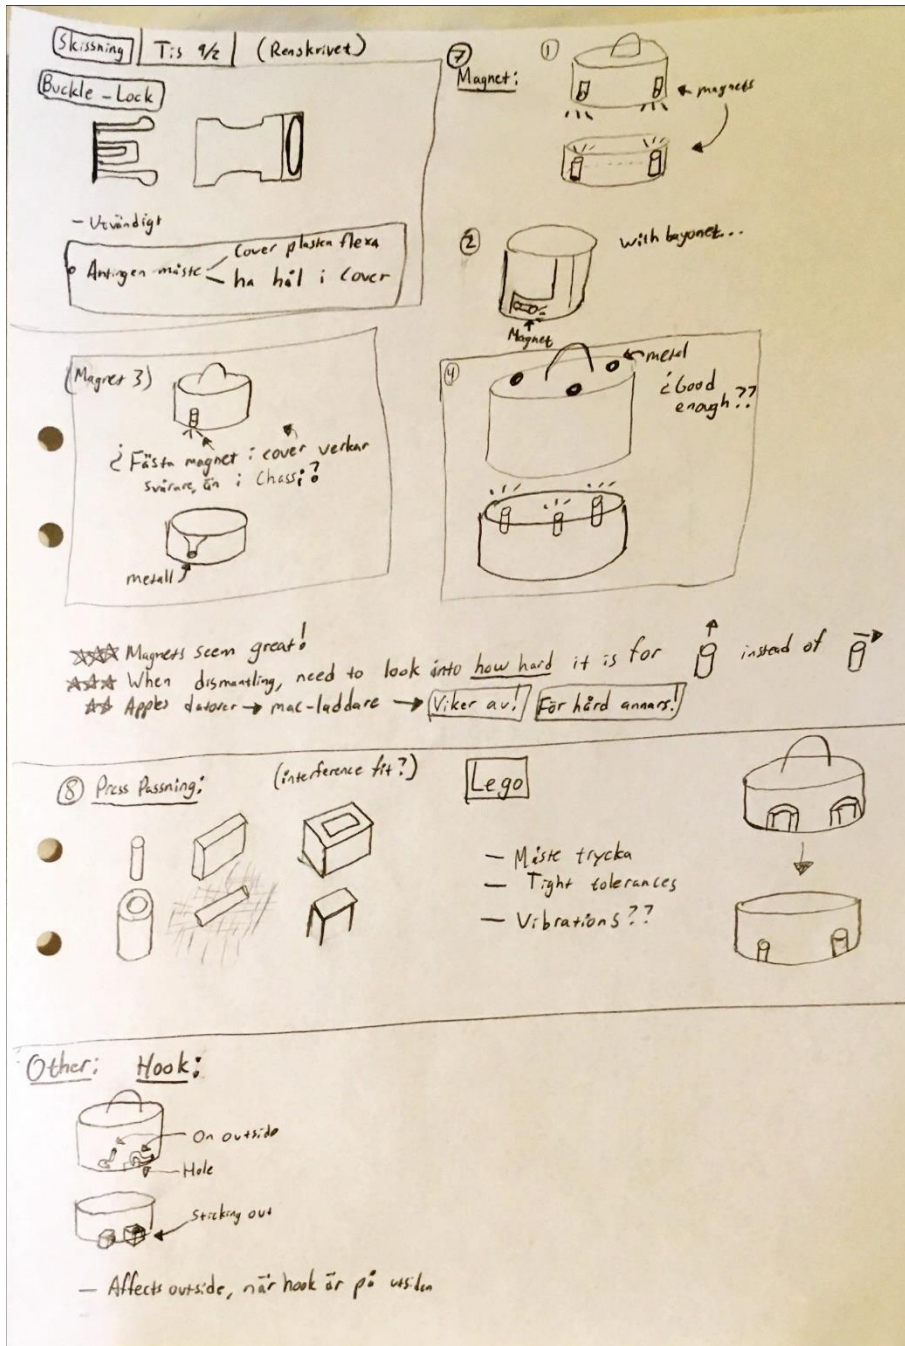 Skissning | Tis 9/2 | (Renskrivet)
Buckle-Lock
- Utvändigt
Antingen måste
Cover plasten flexa
ha hål i cover
7
Magnet:
1
magnets
2
with bayonet...
Magnet
(Magnet 3)
¿ Fästa magnet i cover verkar
svårare, än i Chassi?
metall
4
metal
¿Good
enough??
Magnets seem great!
When dismantling, need to look into how hard it is for instead of
Apples datorer → mac-laddare → Viker av! För hård annars!
8 Press Passning: (interference fit?)
Lego
- Måste trycka
- Tight tolerances
- Vibrations??
Other: Hook:
On outside
Hole
Sticking out
- Affects outside, när hook är på utsidan